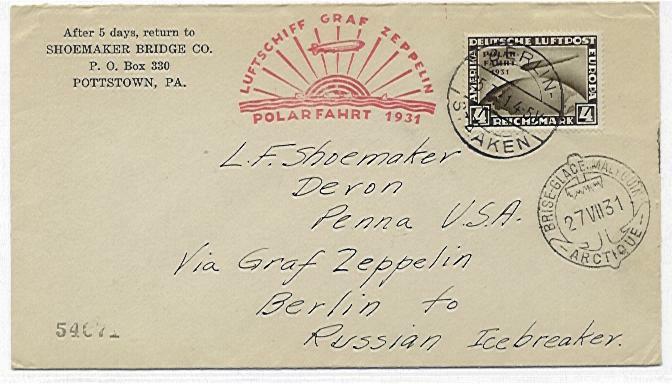 After 5 days, return to
SHOEMAKER BRIDGE CO.
P. O. Box 330
POTTSTOWN, PA.
LUFTSCHIFF GRAF ZEPPELIN
POLARFAHRT 1931
DEUTSCHE LUFTPOST
AMERIKA
EUROPA
POLAR-
FAHRT
1931
4 REICHSMARK 4
BERLIN-
STAAKEN
BRISE-GLACE-MALYGUINE
27 VII 31
ARCTIQUE
L.F. Shoemaker
Devon
Penna U.S.A.
Via Graf Zeppelin
Berlin to
Russian Icebreaker.